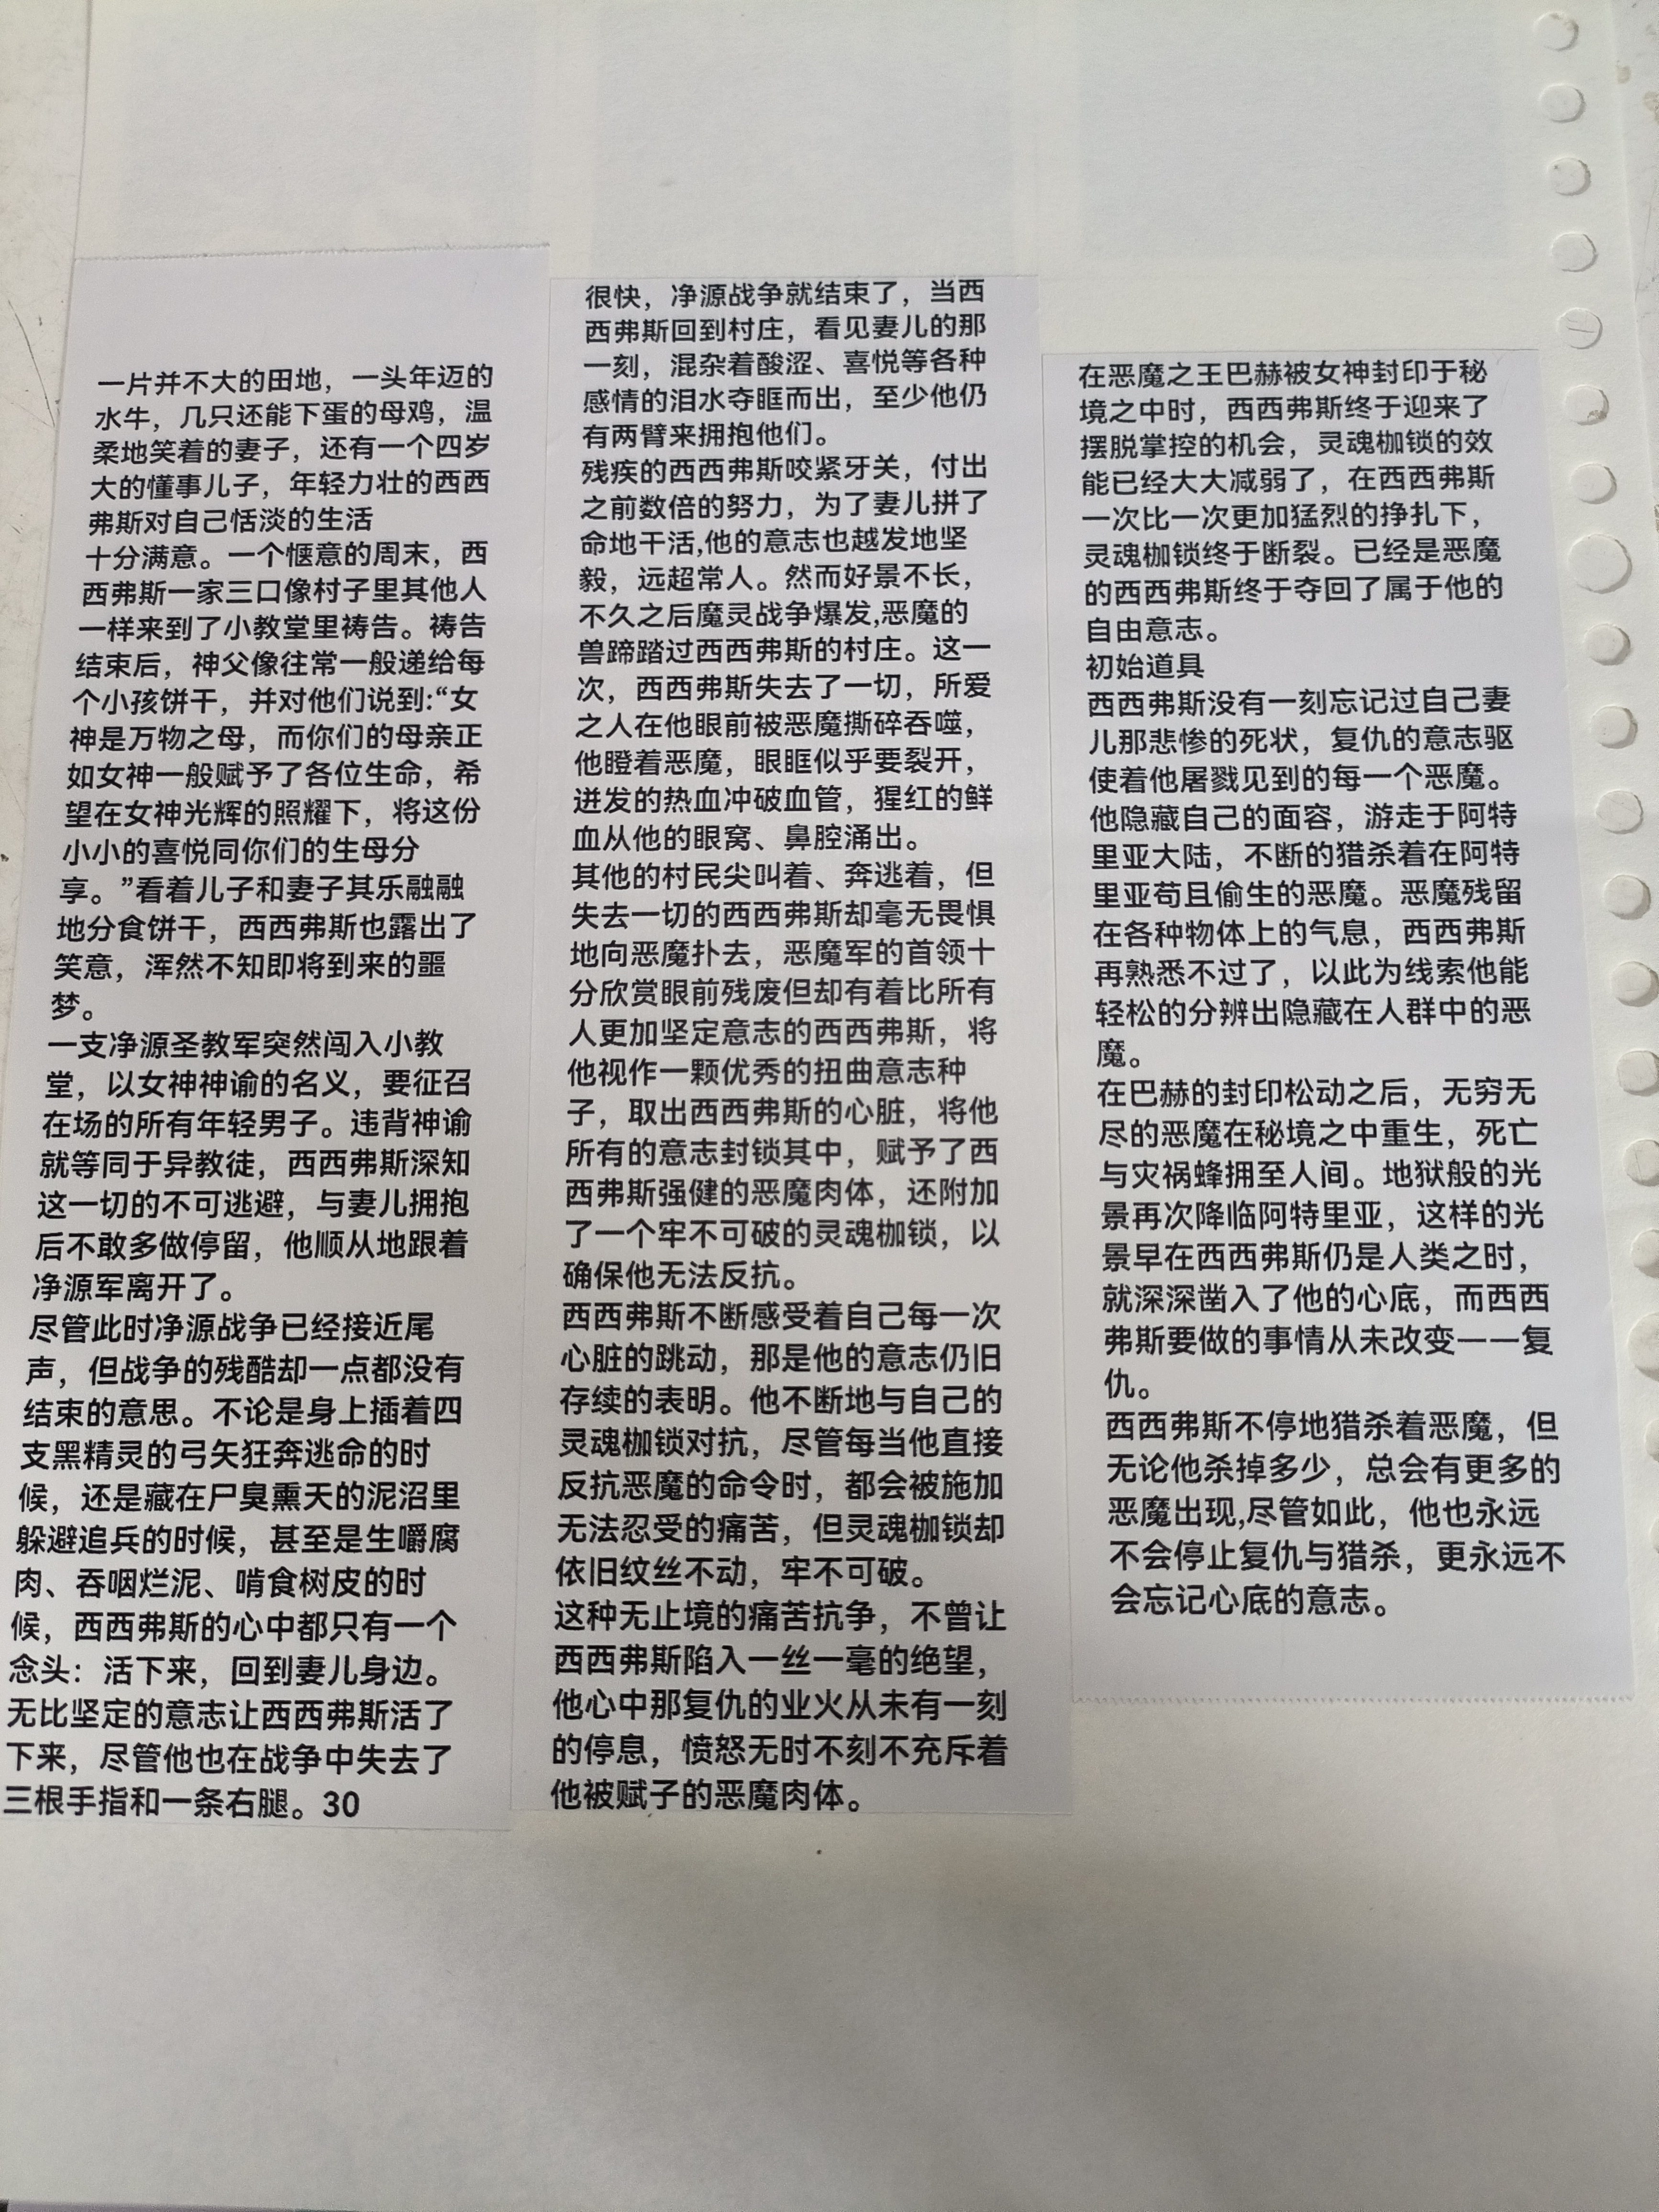 一片并不大的田地，一头年迈的
水牛，几只还能下蛋的母鸡，温
柔地笑着的妻子，还有一个四岁
大的懂事儿子，年轻力壮的西西
弗斯对自己恬淡的生活
十分满意。一个惬意的周末，西
西弗斯一家三口像村子里其他人
一样来到了小教堂里祷告。祷告
结束后，神父像往常一般递给每
个小孩饼干，并对他们说到:“女
神是万物之母，而你们的母亲正
如女神一般赋予了各位生命，希
望在女神光辉的照耀下，将这份
小小的喜悦同你们的生母分
享。”看着儿子和妻子其乐融融
地分食饼干，西西弗斯也露出了
笑意，浑然不知即将到来的噩
梦。
一支净源圣教军突然闯入小教
堂，以女神神谕的名义，要征召
在场的所有年轻男子。违背神谕
就等同于异教徒，西西弗斯深知
这一切的不可逃避，与妻儿拥抱
后不敢多做停留，他顺从地跟着
净源军离开了。
尽管此时净源战争已经接近尾
声，但战争的残酷却一点都没有
结束的意思。不论是身上插着四
支黑精灵的弓矢狂奔逃命的时
候，还是藏在尸臭熏天的泥沼里
躲避追兵的时候，甚至是生嚼腐
肉、吞咽烂泥、啃食树皮的时
候，西西弗斯的心中都只有一个
念头：活下来，回到妻儿身边。
无比坚定的意志让西西弗斯活了
下来，尽管他也在战争中失去了
三根手指和一条右腿。30
很快，净源战争就结束了，当西
西弗斯回到村庄，看见妻儿的那
一刻，混杂着酸涩、喜悦等各种
感情的泪水夺眶而出，至少他仍
有两臂来拥抱他们。
残疾的西西弗斯咬紧牙关，付出
之前数倍的努力，为了妻儿拼了
命地干活,他的意志也越发地坚
毅，远超常人。然而好景不长，
不久之后魔灵战争爆发,恶魔的
兽蹄踏过西西弗斯的村庄。这一
次，西西弗斯失去了一切，所爱
之人在他眼前被恶魔撕碎吞噬，
他瞪着恶魔，眼眶似乎要裂开，
迸发的热血冲破血管，猩红的鲜
血从他的眼窝、鼻腔涌出。
其他的村民尖叫着、奔逃着，但
失去一切的西西弗斯却毫无畏惧
地向恶魔扑去，恶魔军的首领十
分欣赏眼前残废但却有着比所有
人更加坚定意志的西西弗斯，将
他视作一颗优秀的扭曲意志种
子，取出西西弗斯的心脏，将他
所有的意志封锁其中，赋予了西
西弗斯强健的恶魔肉体，还附加
了一个牢不可破的灵魂枷锁，以
确保他无法反抗。
西西弗斯不断感受着自己每一次
心脏的跳动，那是他的意志仍旧
存续的表明。他不断地与自己的
灵魂枷锁对抗，尽管每当他直接
反抗恶魔的命令时，都会被施加
无法忍受的痛苦，但灵魂枷锁却
依旧纹丝不动，牢不可破。
这种无止境的痛苦抗争，不曾让
西西弗斯陷入一丝一毫的绝望，
他心中那复仇的业火从未有一刻
的停息，愤怒无时不刻不充斥着
他被赋子的恶魔肉体。
在恶魔之王巴赫被女神封印于秘
境之中时，西西弗斯终于迎来了
摆脱掌控的机会，灵魂枷锁的效
能已经大大减弱了，在西西弗斯
一次比一次更加猛烈的挣扎下，
灵魂枷锁终于断裂。已经是恶魔
的西西弗斯终于夺回了属于他的
自由意志。
初始道具
西西弗斯没有一刻忘记过自己妻
儿那悲惨的死状，复仇的意志驱
使着他屠戮见到的每一个恶魔。
他隐藏自己的面容，游走于阿特
里亚大陆，不断的猎杀着在阿特
里亚苟且偷生的恶魔。恶魔残留
在各种物体上的气息，西西弗斯
再熟悉不过了，以此为线索他能
轻松的分辨出隐藏在人群中的恶
魔。
在巴赫的封印松动之后，无穷无
尽的恶魔在秘境之中重生，死亡
与灾祸蜂拥至人间。地狱般的光
景再次降临阿特里亚，这样的光
景早在西西弗斯仍是人类之时，
就深深凿入了他的心底，而西西
弗斯要做的事情从未改变一一复
仇。
西西弗斯不停地猎杀着恶魔，但
无论他杀掉多少，总会有更多的
恶魔出现,尽管如此，他也永远
不会停止复仇与猎杀，更永远不
会忘记心底的意志。